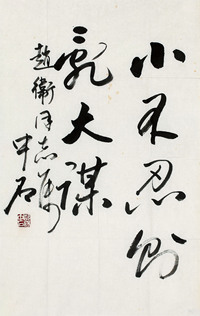 小不忍则
乱大谋
赵卫同志属
中石